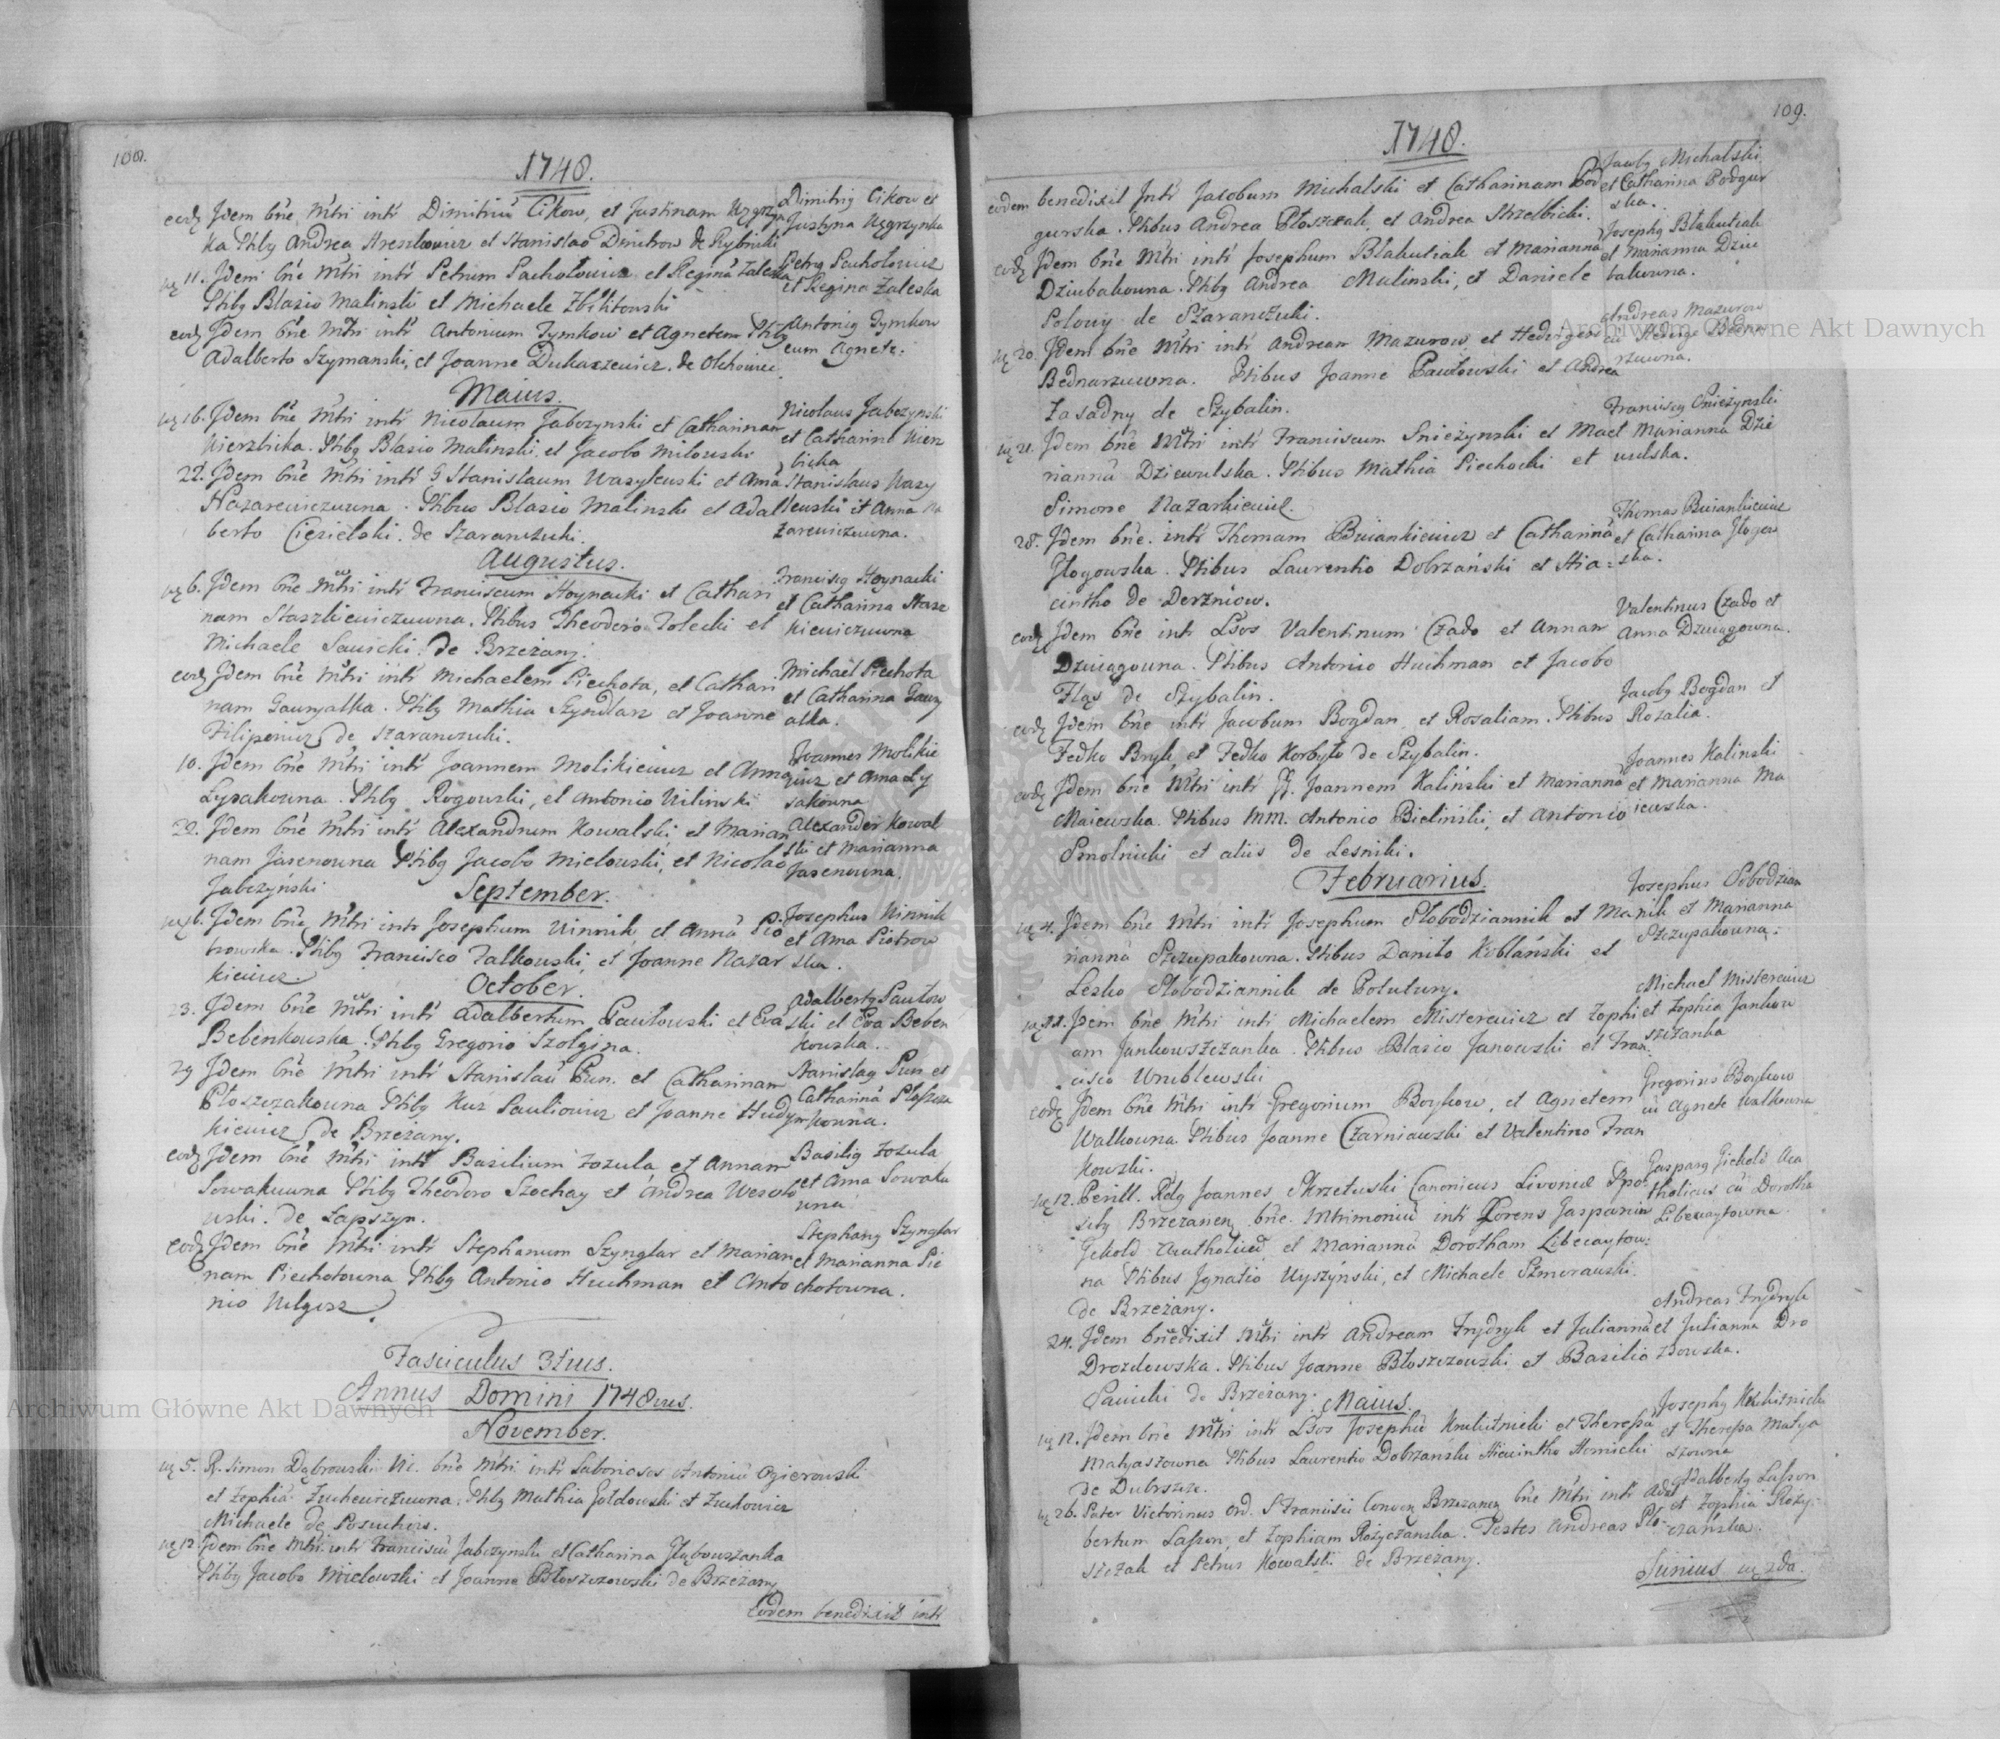 108.
1748.
eodẽ Jdem bñe Mtri intr Dimitriũ Cikow, et Justinam Węgrzyn
ka Ptibg Andrea Hreszkowicz et Stanislao Dimitrow de Rybniki
Dimitrig Cikow et
Justyna Węgrzynka
11. Jdem bñe Mtri intr Petrum Pacholowicz et Reginã Zaleska
Ptibg Blasio Malinski et Michaele Zbikltowski
Petrg Pacholowicz
et Regina Zaleska
eodẽ Jdem bñe Mtri intr Antonium Tymkow et Agnetem Ptibg
Adalberto Szymanski, et Joanne Dukaszewicz de Olchowiec
Antonig Tymkow
cum Agnete.
Maius.
16. Jdem bñe Mtri intr Nicolaum Jabczynski et Catharinam
Wierzbicka. Ptibg Blasio Malinski et Jacobo Milowski
Nicolaus Jabczynski
et Catharina Wierz
bicka
22. Jdem bñe Mtri intr G Stanislaum Wasylewski et Annã
Nazarewiczuwna. Ptibus Blasio Malinski et Adal
berto Cięzielski. de Szaranczuki.
Stanislaus Wasy
lewski et Anna Na
zarewiczuwna.
Augustus.
6. Jdem bñe Mtri intr Franciscum Hoynacki et Cathari
nam Staszkiewiczuwna. Ptibus Theodoro Tolecki et
Michaele Sawicki. de Brzeżany.
Franciscg Hoynacki
et Catharina Stasz
kiewiczuwna
eodẽ Jdem bñe Mtri intr Michaelem Piechota, et Cathari
nam Gawryalka. Ptibg Mathia Szyndlarz et Joanne
Filipowicz de Szaranczuki.
Michael Piechota
et Catharina Gawry
alka.
10. Jdem bñe Mtri intr Joannem Molikiewicz et Anna
Lysakowna. Ptibg Rogowski, et Antonio Wilinski
Joannes Molikie
wicz et Anna Ly
sakowna
22. Jdem bñe Mtri intr Alexandrum Kowalski, et Marian
nam Jasenowna Ptibg Jacobo Mielowski, et Nicolao
Jabczyński
Alexander Kowal
ski et Marianna
Jasenowna.
September.
6. Jdem bñe Mtri intr Josephum Winnik, et Annã Pio
trowska. Ptibg Francisco Zalkowski, et Joanne Nazar
kiewicz.
Josephus Winnik
et Anna Piotrow
ska.
October.
23. Jdem bñe Mtri intr Adalbertum Pawlowski et Evã
Bebenkowska. Ptibg Gregorio Szolgina.
Adalbertg Pawlow
ski et Eva Beben
kowska.
29 Jdem bñe Mtri intr Stanislaũ Pun. et Catharinam
Ploszczakowna Ptibg Kuz Pauliowicz et Joanne Hudy
kiewicz de Brzeżany.
Stanislag Pun et
Catharina Ploszcza
kowna.
eodẽ Jdem bñe Mtri intr Basilium Zozula et Annam
Sowakuwna Ptibg Theodoro Szochay et Andrea Wesolo
wski. de Lapszyn.
Basilig Zozula
et Anna Sowaku
wna
eodẽ Jdem bñe Mtri intr Stephanum Szynglar et Marian
nam Piechotowna Ptibg Antonio Huchman et Anto
nio Wilgosz
Stephang Szynglar
et Marianna Pie
chotowna.
Fasciculus 3tius.
Annus Domini 1748vus.
November.
5. R. Simon Dąbrowski Vic. bñe Mtri intr Laboriosos Antoniũ Ozierowski
et Zophiã Zuchewiczuwna. Ptibg Mathia Goldowski et Zuchowicz
Michaele de Posuchow.
12. Jdem bñe Mtri intr Franciscũ Jabczynski et Catharina Glębowszanka
Ptibg Jacobo Mielowski et Joanne Bloszczowski de Brzeżany
Eodem benedixit intr
109.
1748.
eodem benedixit Jntr Jacobum Michalski et Catharinam Pod
gurska. Ptibus Andrea Ploszczak, et Andrea Strzelbicki.
Jacobg Michalski
et Catharina Podgur
ska.
eodẽ Jdem bñe Mtri intr Josephum Blakutiak et Marianna
Dziubakowna. Ptibg Andrea Malinski, et Daniele
Polowy de Szaranczuki.
Josephg Blakutiak
et Marianna Dziu
bakowna.
20. Jdem bñe Mtri intr Andream Mazurow, et Hedvigem
Bednarzuwna. Ptibus Joanne Pawlowski et Andrea
Zasadny de Szybalin.
Andreas Mazurow
cũ Hedvige Bedna
rzuwna.
21. Jdem bñe Mtri intr Franciscum Snieżynski et Ma
riannã Dziewulska. Ptibus Mathia Piechocki et
Simone Nazarkiewicz.
Franciscg Snieżynski
et Marianna Dzie
wulska.
28. Jdem bñe. intr Thomam Buiankiewicz et Catharinã
Glogowska. Ptibus Laurentio Dobrzański et Hia=
cintho de Derzniow.
Thomas Buiankiewicz
et Catharina Glogow
ska.
eodẽ Jdem bñe intr Lsos Valentinum Czado et Annam
Dzwiągowna. Ptibus Antonio Huchman et Jacobo
Flas de Szybalin.
Valentinus Czado et
Anna Dzwiągowna.
eodẽ Jdem bñe intr Jacobum Bogdan et Rosaliam. Ptibus
Fedko Bryk, et Fedko Korbylo de Szybalin.
Jacobg Bogdan et
Rozalia.
eodẽ Jdem bñe Mtri intr Joannem Kaliński et Mariannã
Maiewska. Ptibus MM. Antonio Bieliński, et Antonio
Smolnicki et aliis de Lesniki.
Joannes Kalinski
et Marianna Ma
iewska.
Februarius.
4. Jdem bñe Mtri intr Josephum Slobodziannik et Ma
riannã Szczupakowna. Ptibus Danilo Koblański et
Lesko Slobodziannik de Potutory.
Josephus Slobodzian
nik et Marianna
Szczupakowna.
11. Jdem bñe Mtri intr Michaelem Misterewicz et Zophi
am Jankowszczanka. Ptibus Blasio Janowski et Fran
cisco Wrublewski
Michael Misterewicz
et Zophia Jankow
szczanka
eodẽ Jdem bñe Mtri intr Gregorium Boykow, et Agnetem
Walkowna. Ptibus Joanne Czarniawski et Valentino Fran
kowski.
Gregorius Boykow
cũ Agnete Walkowna
12. Perill. Rdg Joannes Skrzetuski Canonicus Livoniæ Prpo
situs Brzezanen. bñe. Mtrimoniũ intr Florens Gasparum
Gekold Acatholicũ, et Mariannã Dorotham Libecaytow:
na Ptibus Jgnatio Wyszyński, et Michaele Szmorawski.
de Brzeżany.
Gasparg Giekold Aca
tholicus cũ Dorotha
Libecaytowna.
24. Jdem bñedixit Mtri intr Andream Frydryk et Juliannã
Drozdowska. Ptibus Joanne Bloszczowski et Basilio
Sawicki de Brzeżany.
Andreas Frydryk
et Julianna Dro
zdowska.
Maius.
12. Jdem bñe Mtri intr Lsos Josephũ Krukutnicki et Theressã
Matyaszowna Ptibus Laurentio Dobrzański Hiacintho Hornicki
de Dubrszcze.
Josephg Krukutnicki
et Theressa Matya
szowna
26. Pater Victorinus Ord. S Francisci Conven. Brzezanen. bñe Mtri intr Adal
bertum Lasson, et Zophiam Rożyczanska. Testes Andreas Plo
szczak et Petrus Kowalski de Brzeżany.
Adalbertg Lasson
et Zophia Roży=
czańska.
Junius 2da.
Archiwum Główne Akt Dawnych
Archiwum Główne Akt Dawnych